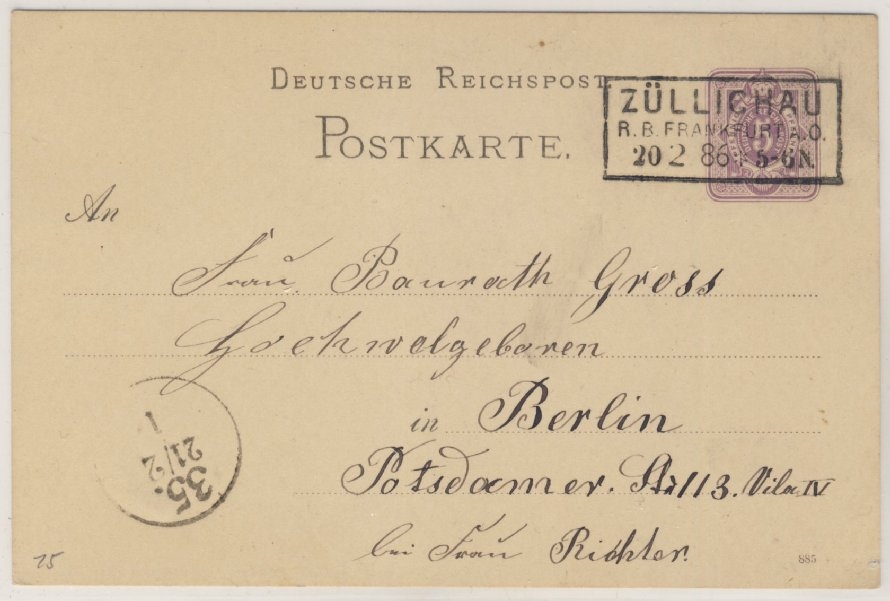 DEUTSCHE REICHSPOST
POSTKARTE.
ZÜLLICHAU
R.B. FRANKFURT A.O.
20 2 86 5-6N.
An
Frau Baurath Gross
Hochwolgeboren
in Berlin
Potsdamer. Str 113. Vila IV
bei Frau Richter.
1
21/2
35.
15
885